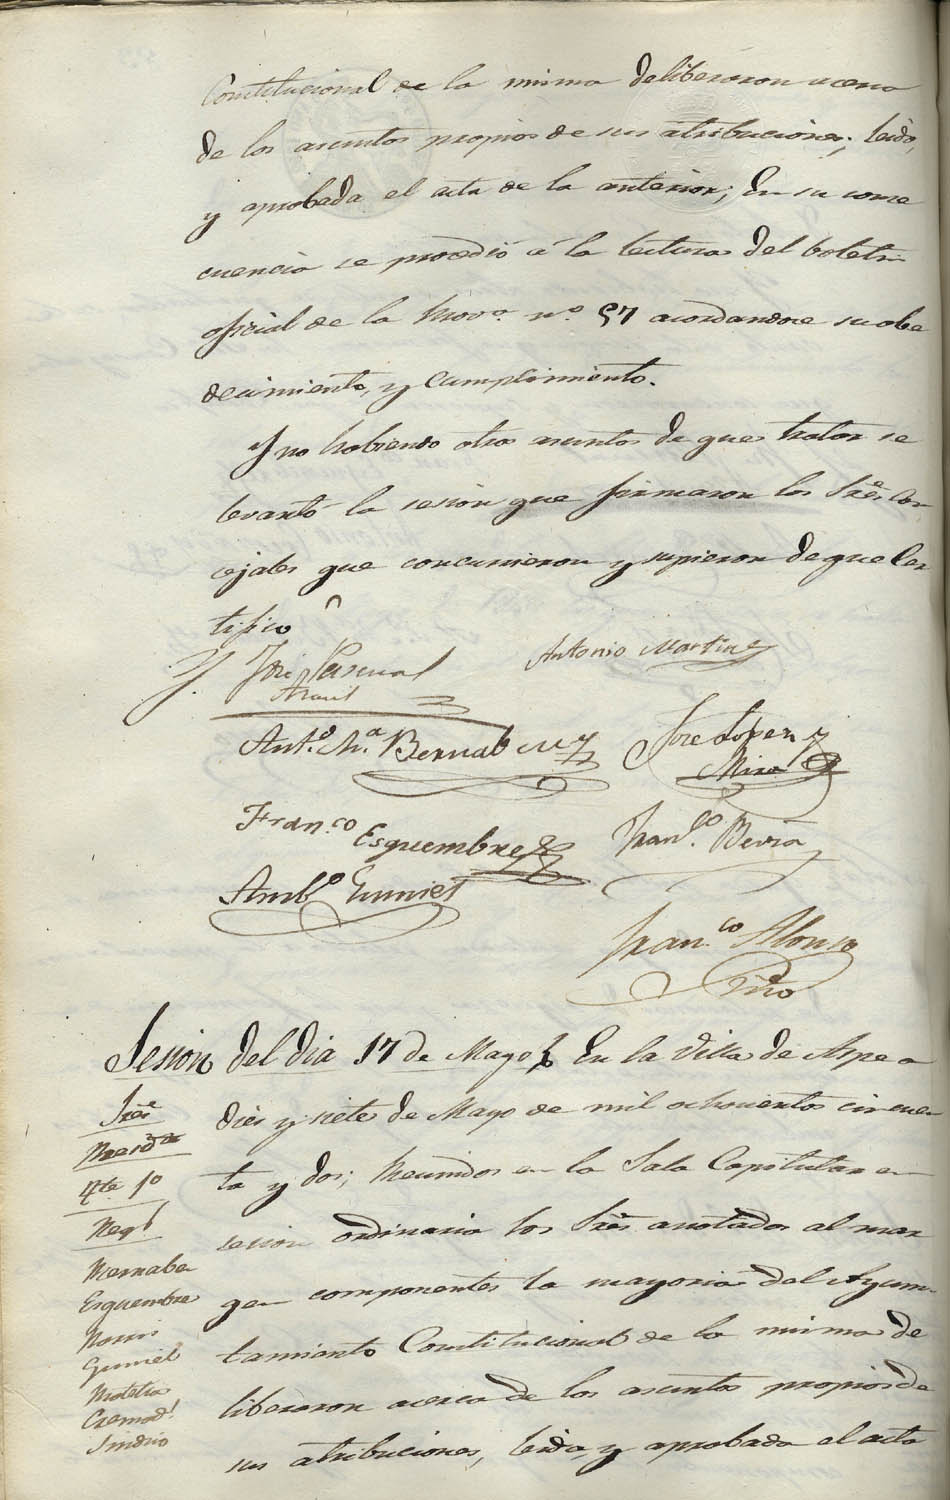 Constitucional de la misma deliberaron acerca
de los asuntos propios de sus atribuciones; leida,
y aprobada el acta de la anterior; En su conse
cuencia se procedió á la lectura del boletin
oficial de la Prov.ª n.º 57 acordandose su obe
decimiento, y cumplimiento.
Y no habiendo otros asuntos de que tratar se
levantó la sesion que firmaron los Sres. Con
cejales que concurrieron y supieron de que Cer
tifico
José Pascual
Antonio Martinez
Ant.º M.ª Bernabeu
José Lopez y
Mira
Fran.co Esquembre
Fran.co Bevia
Amb.º Gumiel
Fran.co Alonso
Sesion del dia 17 de Mayo En la Villa de Aspe a
Sres.
dies y siete de Mayo de mil ochocientos cincuen
Presid.te
ta y dos; Reunidos en la Sala Capitular en
Tte. 1º
sesion ordinaria los Sres. anotados al mar
Reg.s
gen componentes la mayoria del Ayun
Bernabeu
Esquembre
tamiento Constitucional de la misma de
Gumiel
liberaron acerca de los asuntos propios de
Cremad.s
Sindico
sus atribuciones, leida, y aprobada el acta